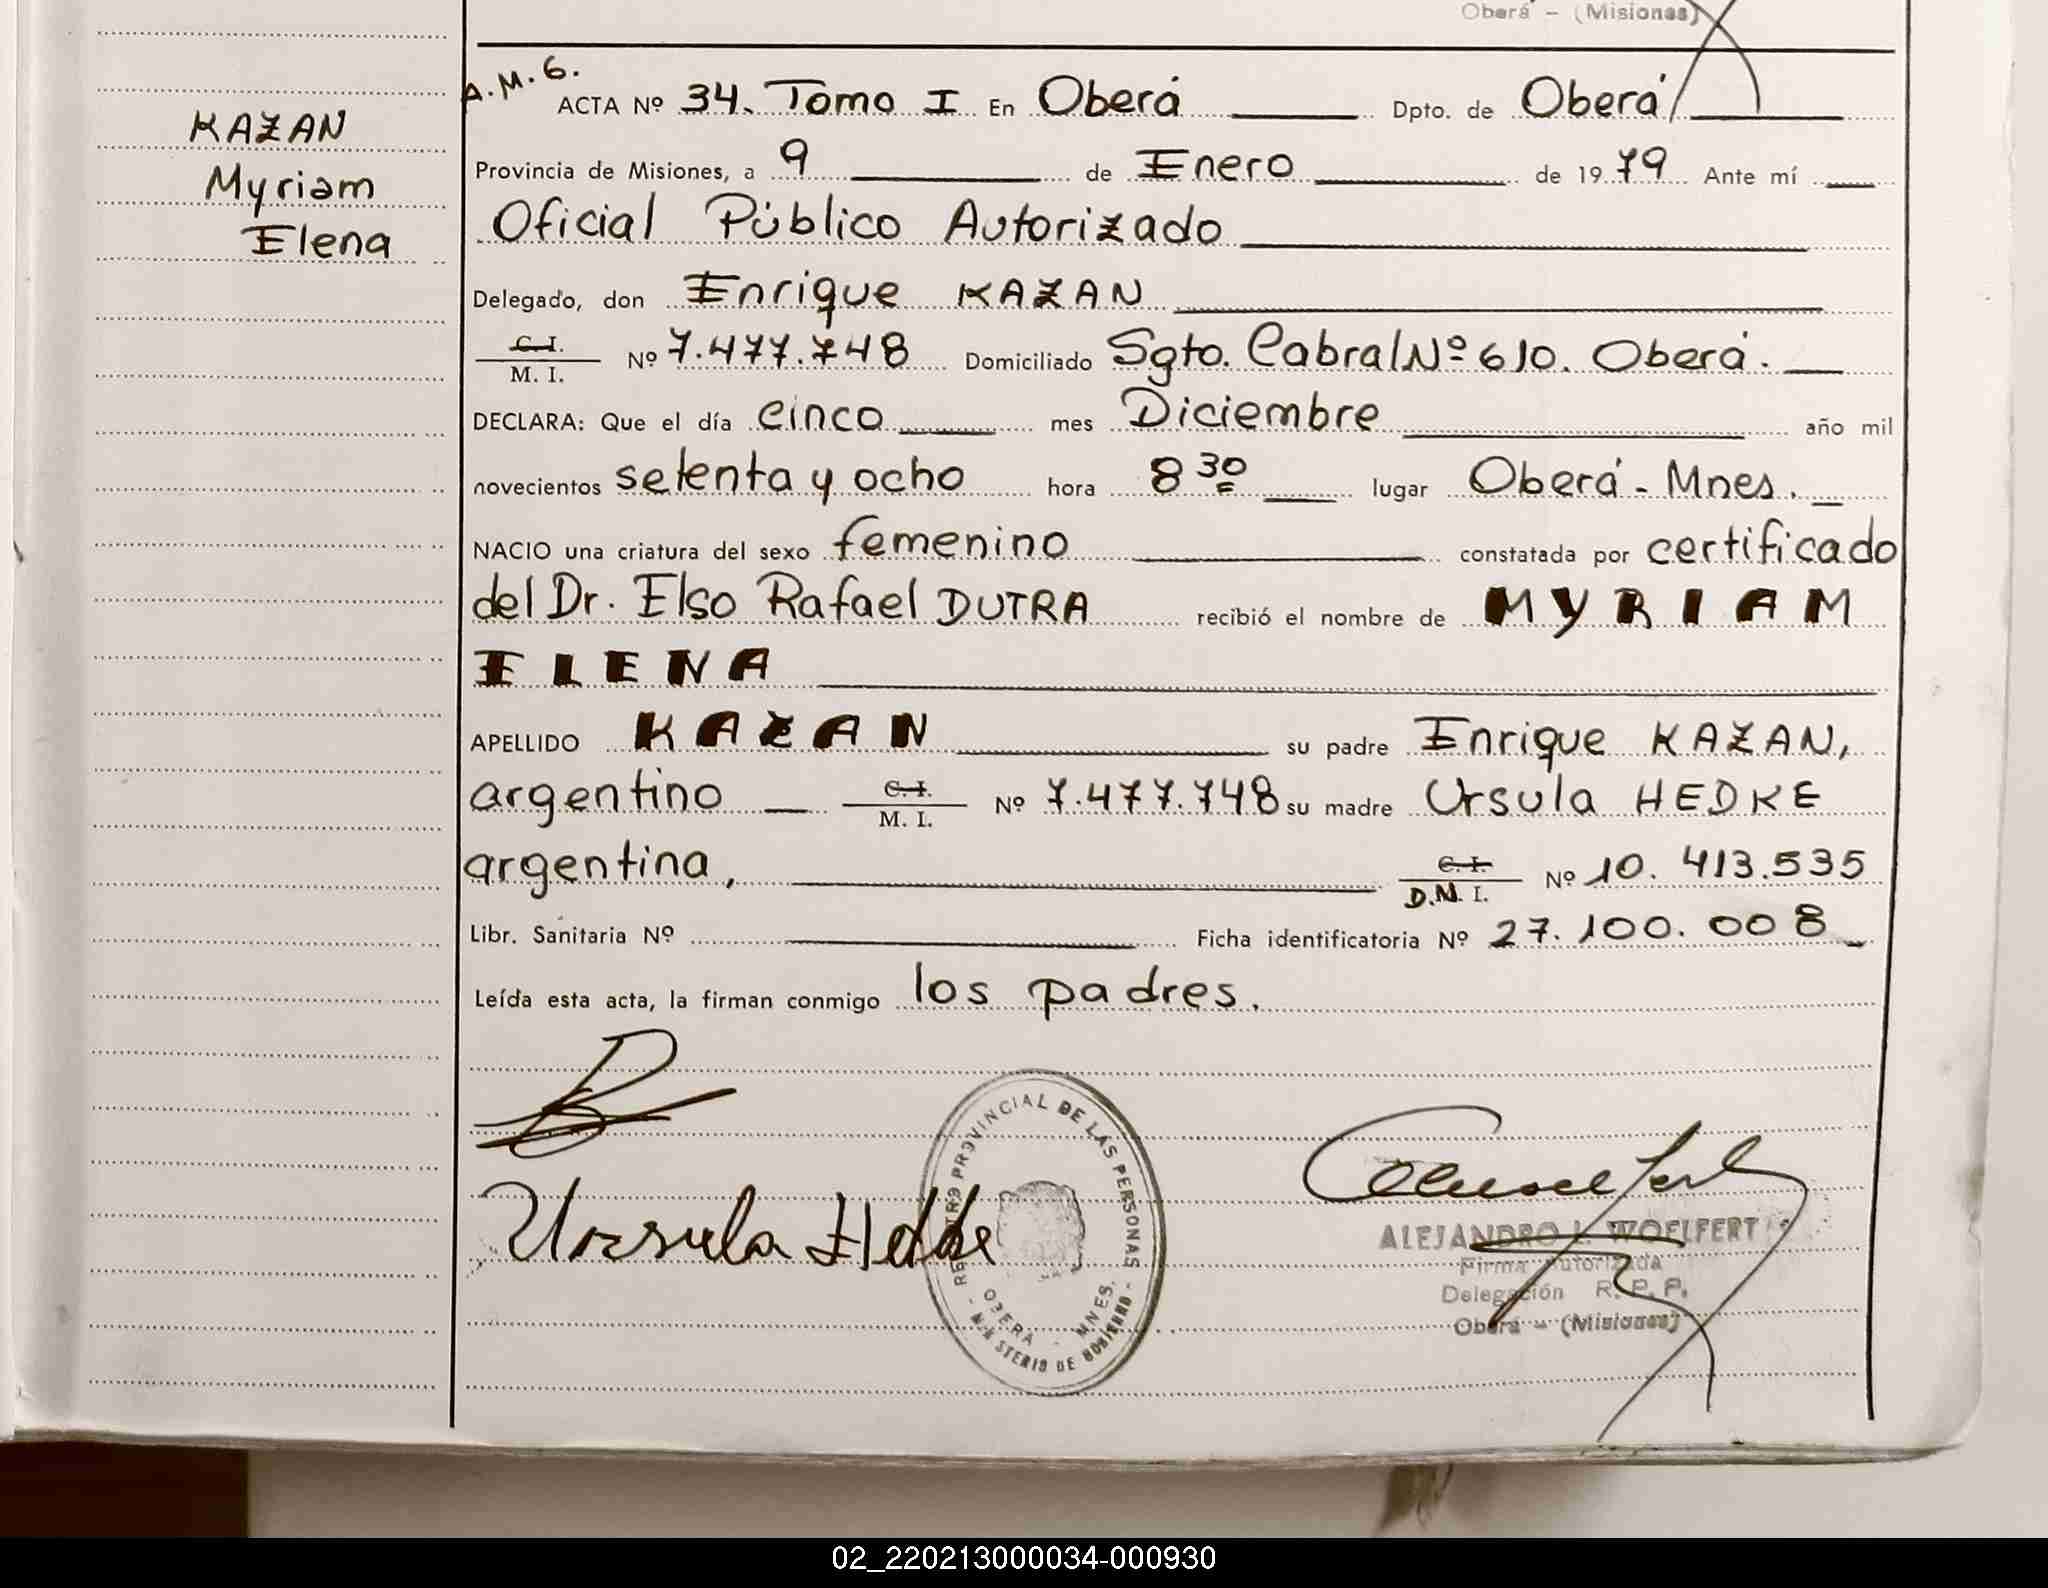 Oberá - (Misiones)
A.M.G.
ACTA Nº 34. Tomo I En Oberá Dpto. de Oberá
KAZAN
Myriam
Elena
Provincia de Misiones, a 9 de Enero de 1979 Ante mí
Oficial Público Autorizado
Delegado, don Enrique KAZAN
C. I.
M. I. Nº 7.477.748 Domiciliado Sgto. Cabral Nº 610. Oberá.
DECLARA: Que el día cinco mes Diciembre año mil
novecientos setenta y ocho hora 8 30 lugar Oberá - Mnes.
NACIO una criatura del sexo femenino constatada por certificado
del Dr. Elso Rafael DUTRA recibió el nombre de MYRIAM
ELENA
APELLIDO KAZAN su padre Enrique KAZAN,
argentino C. I. M. I. Nº 7.477.748 su madre Ursula HEDKE
argentina, C. I. D.N. I. Nº 10. 413.535
Libr. Sanitaria Nº Ficha identificatoria Nº 27.100.008
Leída esta acta, la firman conmigo los padres.
Ursula Hedke
REGISTRO PROVINCIAL DE LAS PERSONAS - MINISTERIO DE GOBIERNO -
OBERA - MNES.
ALEJANDRO L. WOELFERT
Firma Autorizada
Delegación R. P. P.
Oberá - (Misiones)
02_220213000034-000930